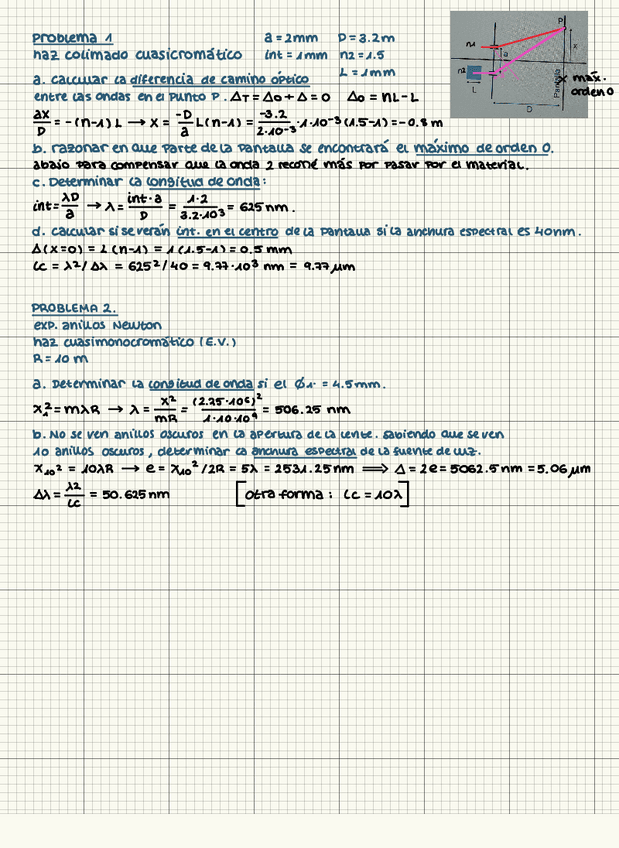 Problema 1 a = 2mm D = 3.2m
haz colimado cuasicromático int = 1mm n2 = 1.5
L = 1mm
a. calcular la diferencia de camino óptico
entre las ondas en el punto P. ΔT = Δ0 + Δ = 0 Δ0 = nL - L
ax/D = -(n-1)L → x = -D/a L(n-1) = -3.2/2·10⁻³ · 1·10⁻³(1.5-1) = -0.8 m
b. razonar en que parte de la pantalla se encontrará el máximo de orden 0.
abajo para compensar que la onda 2 recorre más por pasar por el material.
c. Determinar la longitud de onda:
int = λD/a → λ = int·a/D = 1·2/3.2·10³ = 625 nm.
d. calcular si se verán int. en el centro de la pantalla si la anchura espectral es 40nm.
Δ(x=0) = L(n-1) = 1(1.5-1) = 0.5 mm
lc = λ²/Δλ = 625²/40 = 9.77·10³ nm = 9.77 μm
P
n1
n2
a
x
L
D
Pantalla
x máx.
orden 0
PROBLEMA 2.
exp. anillos Newton
haz cuasimonocromático (E.V.)
R = 10 m
a. Determinar la longitud de onda si el ϕ1· = 4.5mm.
x₁² = mλR → λ = x²/mR = (2.25·10⁶)²/1·10·10⁹ = 506.25 nm
b. No se ven anillos oscuros en la apertura de la lente. sabiendo que se ven
10 anillos oscuros, determinar la anchura espectral de la fuente de luz.
x₁₀² = 10λR → e = x₁₀²/2R = 5λ = 2531.25nm ⟹ Δ = 2e = 5062.5nm = 5.06 μm
Δλ = λ²/lc = 50.625 nm [otra forma: lc = 10λ]